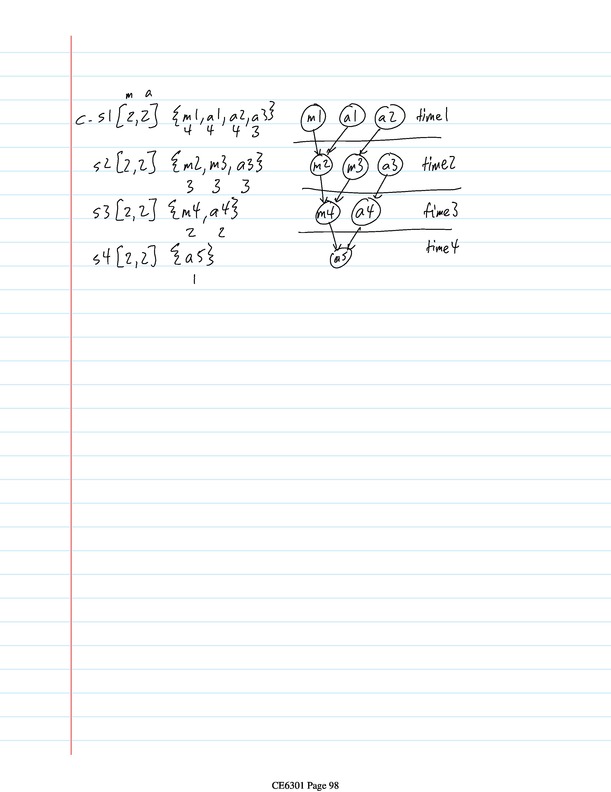 m a
c- s1 [2,2] {m1,a1,a2,a3} m1 a1 a2 time1
4 4 4 3
s2 [2,2] {m2,m3,a3} m2 m3 a3 time2
3 3 3
s3 [2,2] {m4,a4} m4 a4 time3
2 2
s4 [2,2] {a5} a5 time4
1
CE6301 Page 98